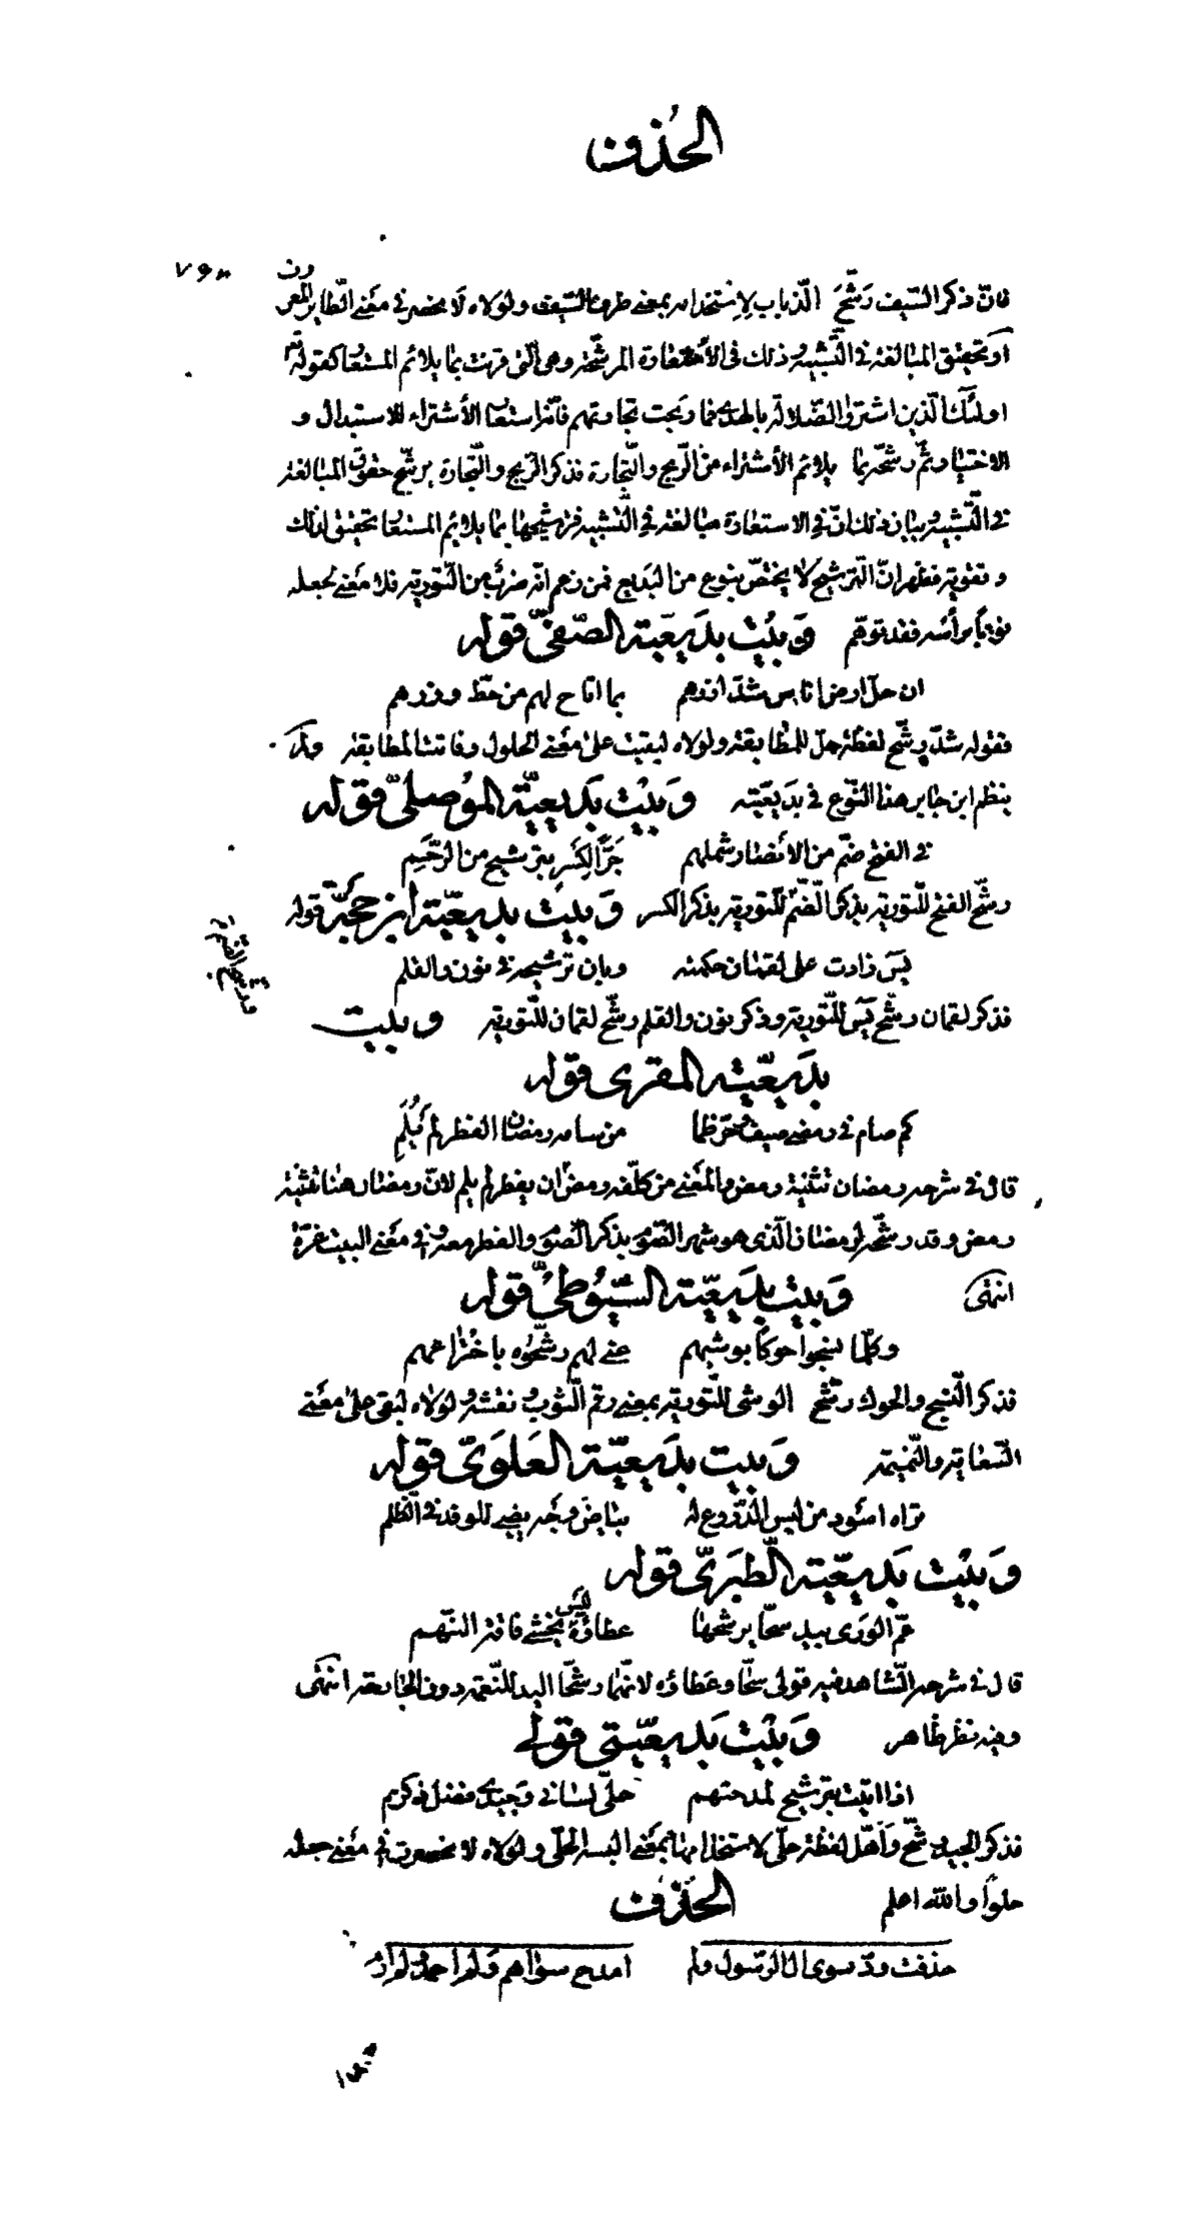 الحذف
٧٩٨
فانّ ذكر السّيف رشّح الذّباب لاستخدامه بمعنى طرف السّيف ولولاه لانحصر في معنى الطّاير المعروف
او تحقيق المبالغة في التّشبيه وذلك في الأستعارة المرشّحة وهى الّتى قرنت بما يلائم المستعار كقوله تعم
اولئك الّذين اشتروا الضّلالة بالهدى فما ربحت تجارتهم فانّه استعار الأشتراء للاستبدال و
الاختيار ثمّ رشّحه بما يلائم الأشتراء من الرّبح والتّجارة فذكر الرّبح والتّجارة يرشّح حقوق المبالغة
في التّشبيه وبيان ذلك انّ في الاستعارة مبالغة في التّشبيه فترشيحها بما يلايم المستعار تحقيق لذلك
وتقوية فظهر انّ التّرشيح لا يختصّ بنوع من البديع فمن زعم انّه ضرب من التّورية فلا معنى لجعله
نوعاً برأسه فقد توهّم وَبيت بديعيّة الصّفيّ قوله
ان حلّ ارض اناس شدّ ازرهم بما اتاح لهم من حطّ وزرهم
فقوله شدّ رشّح لفظة حلّ للمطابقة ولولاه لبقيت على معنى الحلول وفاتت المطابقة ولم
ينظم ابن جابر هذا النّوع في بديعيّته وَبيت بديعيّة الموصليّ قوله
في الفتح ضمّ من الانصار شملهم جبراً لكسر بترشيح من الرّحِم
رشّح الفتح للتّورية بذكر الضّمّ للتّورية بذكر الكسر وَبيت بديعيّة ابن حجّة قوله
يس زادت على لقمان حكمته وبان ترشيحه في نون والقلم
فذكر لقمان رشّح يس للتّورية وذكر نون والقلم رشّح لقمان للتّورية وبيت
بديعيّة المقرى قوله
كم صام في رمضى صيف تحر ظما من سامه رمضان الفطر لم يُلَمِ
قال في شرحه رمضان تثنية رمض والمعنى من كلّفه رمض ان يفطر لم يلم لانّ رمضان هنا تثنية
رمض وقد رشّحه لرمضان الّذى هو شهر الصّوم بذكر الصّوم والفطر معروف في معنى البيت غرّة
انتهى وَبيت بديعيّة السّيوطيّ قوله
وكلّما نسجوا حوكاً بوشيهم عنى لهم رشّحوه باختراعهم
فذكر النّسج والحوك رشّح الوشى للتّورية بمعنى رقم الثّوب ونقشه ولولاه لبقى على معنى
السّعاية والنّميمة وَبيت بديعيّة العَلَويّ قوله
تراه اسود من لبس الدّروع له بياض وجه يضىء للوفد في الظّلم
وَبيت بديعيّة الطّبريّ قوله
عمّ الورى بيد سحّا يرشّحها عطاؤه ليس يخشى فاقة النّهم
قال في شرحه الشّاهد فيه قولى سحّا وعطاؤه لانّهما رشّحا اليد للنّعمة دون الجارحة انتهى
وفيه نظر ظاهر وَبيت بديعيّتى قولى
اذا اتيت بترشيح لمدحتهم حلّى لسانى وجيدى فضل ذكرهم
فذكر الجيد رشّح وأهّل لفظة حلّى لاستخدامها بمعنى البسه الحلى ولولاه لانحصرت في معنى جعله
حلواً والله اعلم الحذف
حذفت ودّ سوى ال الرّسول ولم امدح سواهم ولم احمد ولم ارم